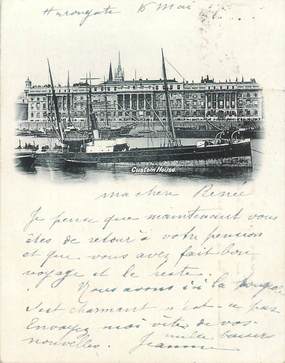 Harrongate 15 Mai
Custom House.
ma chère Renée
Je pense que maintenant vous
êtes de retour à votre pension
et que vous avez fait bon
voyage et le reste.
Nous avons ici la
c'est charmant n'est-ce pas
Envoyez moi vite de vos
nouvelles. mille baisers
Jeanne